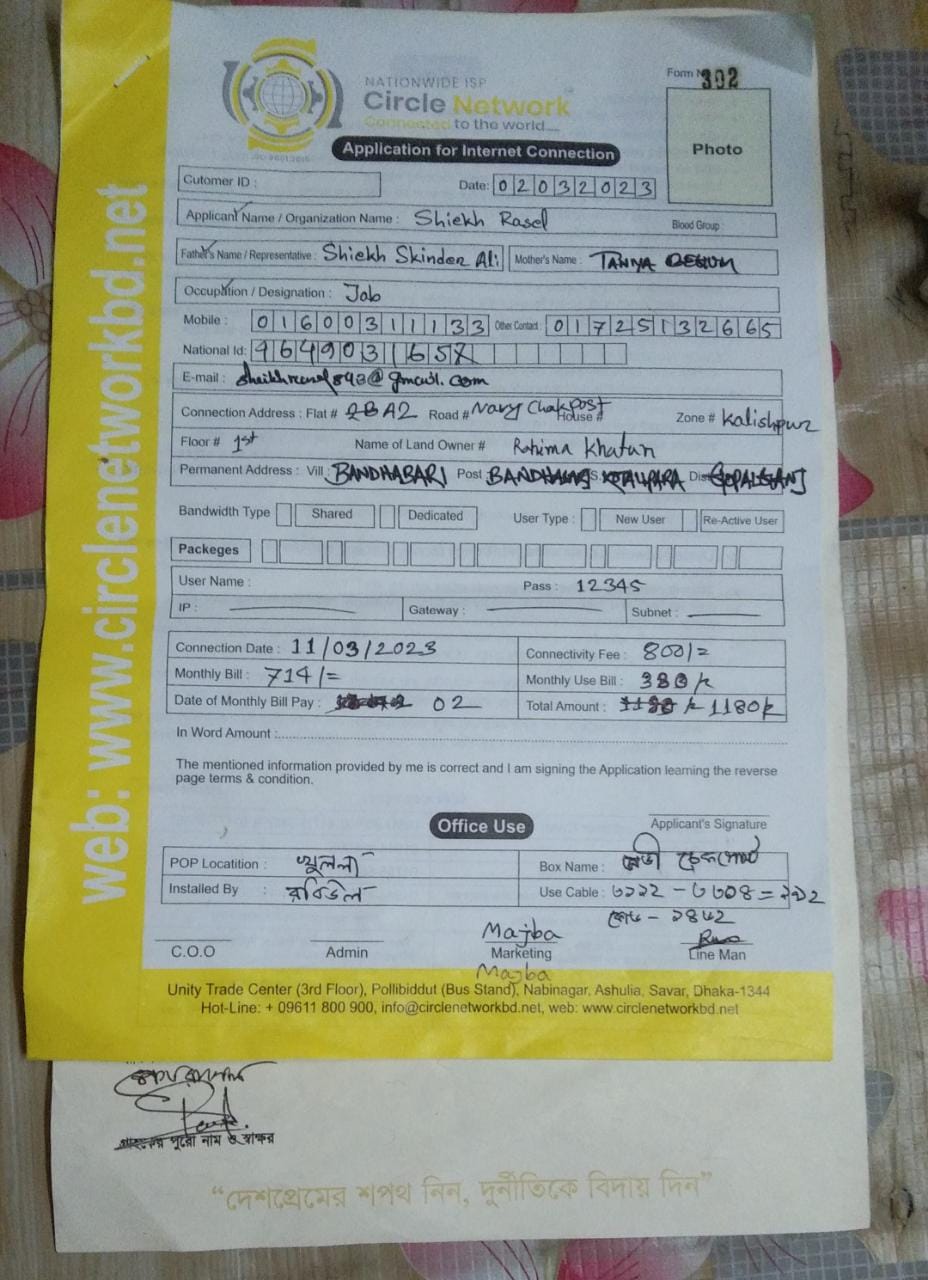 web: www.circlenetworkbd.net
NATIONWIDE ISP
Circle Network
Connected to the world....
ISO 9001:2015
Form N 392
Photo
Application for Internet Connection
Cutomer ID :
Date: 02032023
Applicant Name / Organization Name : Shiekh Rasel Blood Group
Father's Name / Representative : Shiekh Skinder Ali Mother's Name : TANNA BEGUM
Occupation / Designation : Job
Mobile : 01600311133 Other Contact : 01725132665
National Id:
E-mail : @gmail.com
Connection Address : Flat # 2BA2 Road # Navy Chakpost House # Zone # Kalishpur
Floor # 1st Name of Land Owner # Rahima Khatun
Permanent Address : Vill : BANDHABARI Post KOTALIPARA Dis GOPALGANJ
Bandwidth Type Shared Dedicated User Type : New User Re-Active User
Packeges
User Name : Pass : 12345
IP : Gateway : Subnet :
Connection Date : 11/03/2023 Connectivity Fee : 800/=
Monthly Bill : 714/= Monthly Use Bill : 380/
Date of Monthly Bill Pay : 02 Total Amount : 1180/
In Word Amount :
The mentioned information provided by me is correct and I am signing the Application learning the reverse
page terms & condition.
Applicant's Signature
Office Use
POP Locatition : খুলনা Box Name : নেভী চেকপোস্ট
Installed By : রবিউল Use Cable :
Majba
C.O.O Admin Marketing Line Man
Majba
Unity Trade Center (3rd Floor), Pollibiddut (Bus Stand), Nabinagar, Ashulia, Savar, Dhaka-1344
Hot-Line: + 09611 800 900, info@circlenetworkbd.net, web: www.circlenetworkbd.net
গ্রাহকের পুরো নাম ও স্বাক্ষর
“দেশপ্রেমের শপথ নিন, দুর্নীতিকে বিদায় দিন”